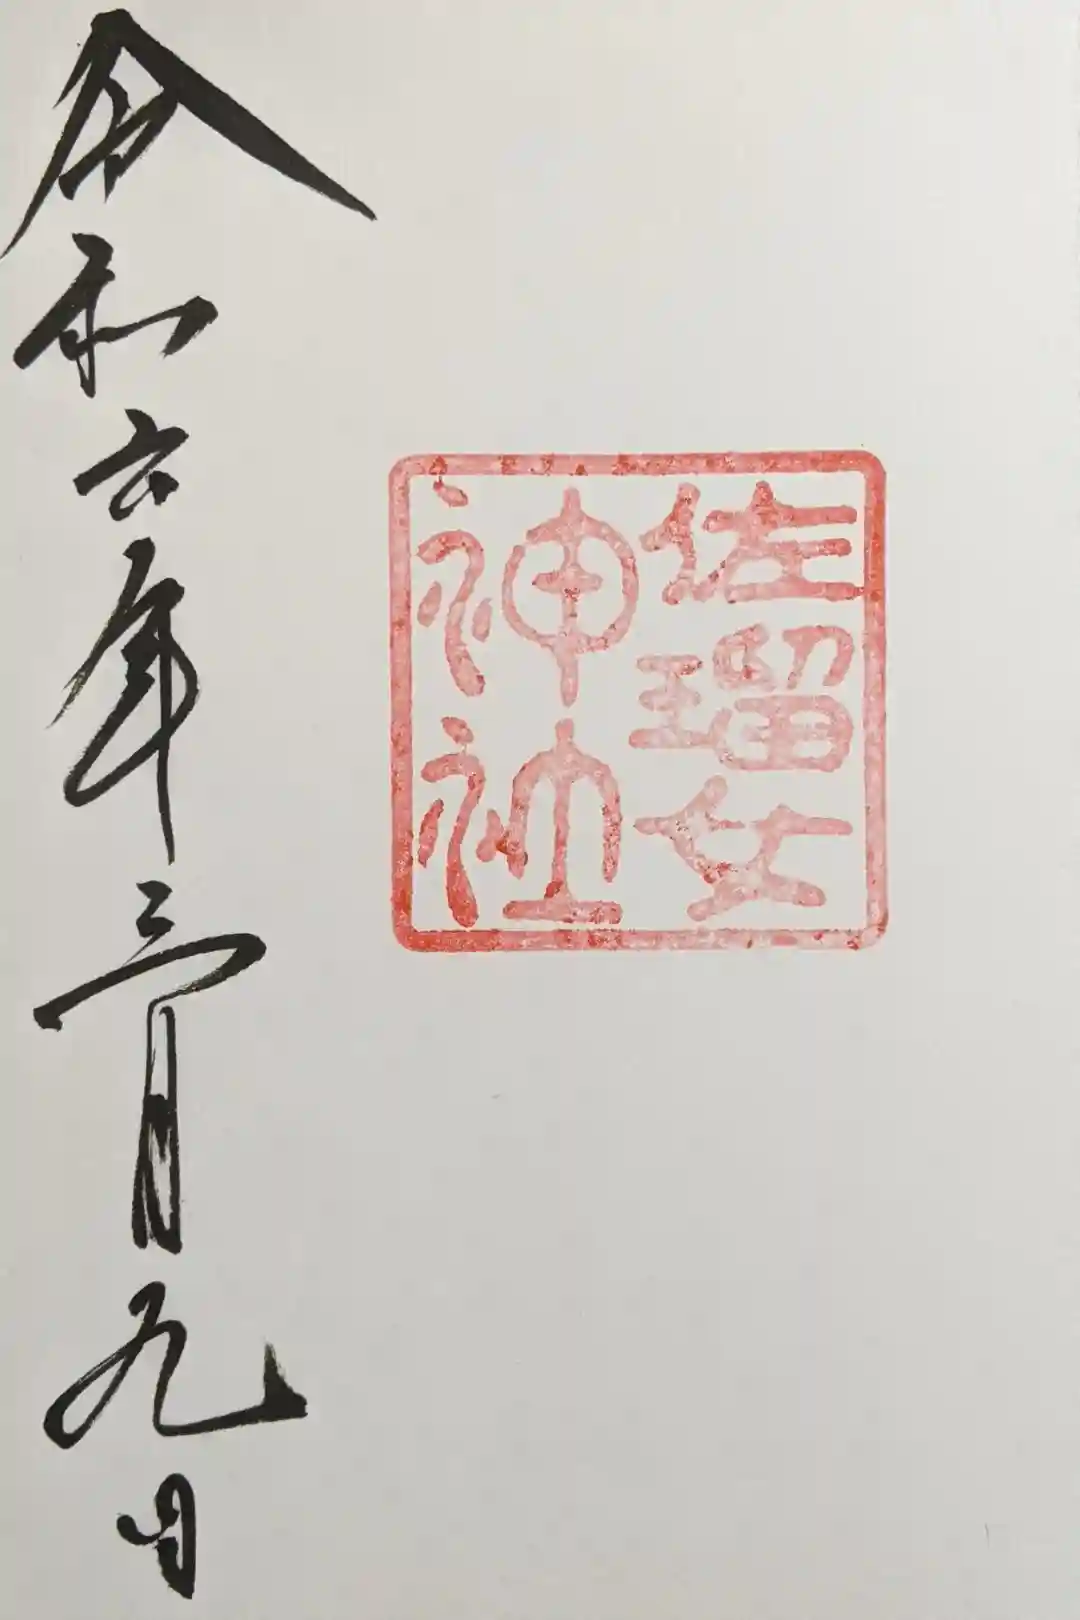 佐瑠女
神社
令和六年三月九日